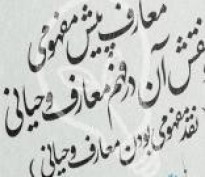 معارف پیش مفهومی
و نقش آن در فهم معارف وحیانی
(نقد مفهومی بودن معارف وحیانی)